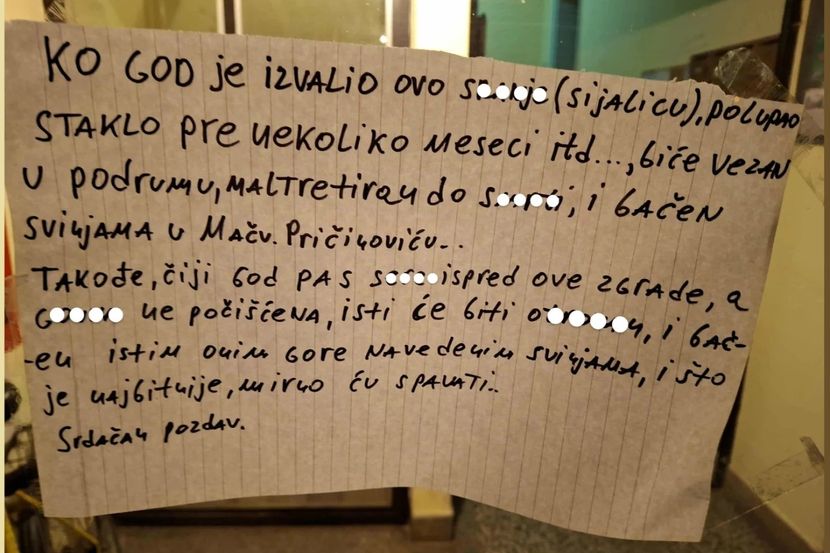 KO GOD je iZVALiO OVO (SijALiCU), POLUPAO
STAKLO pre nekoliko meseci itd..., biće VEZAN
U podrumu, MALTretiran do i bAČEN
SVinjAMA U MAČV. PriČinoviću..
TAKOđe, čiji GOD PAS ispred ove ZGRAde, A
ne počišćena, isti će biti i bAČ-
-en istim onim GORE NAVedenim SVinjAMA, i što
je najbitnije, mirno ću SPAVATi..
SrdAČAn pozdav.